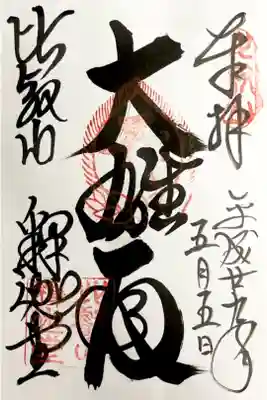 奉拝
平成廿九年
五月五日
大雄殿
比叡山
釋迦堂